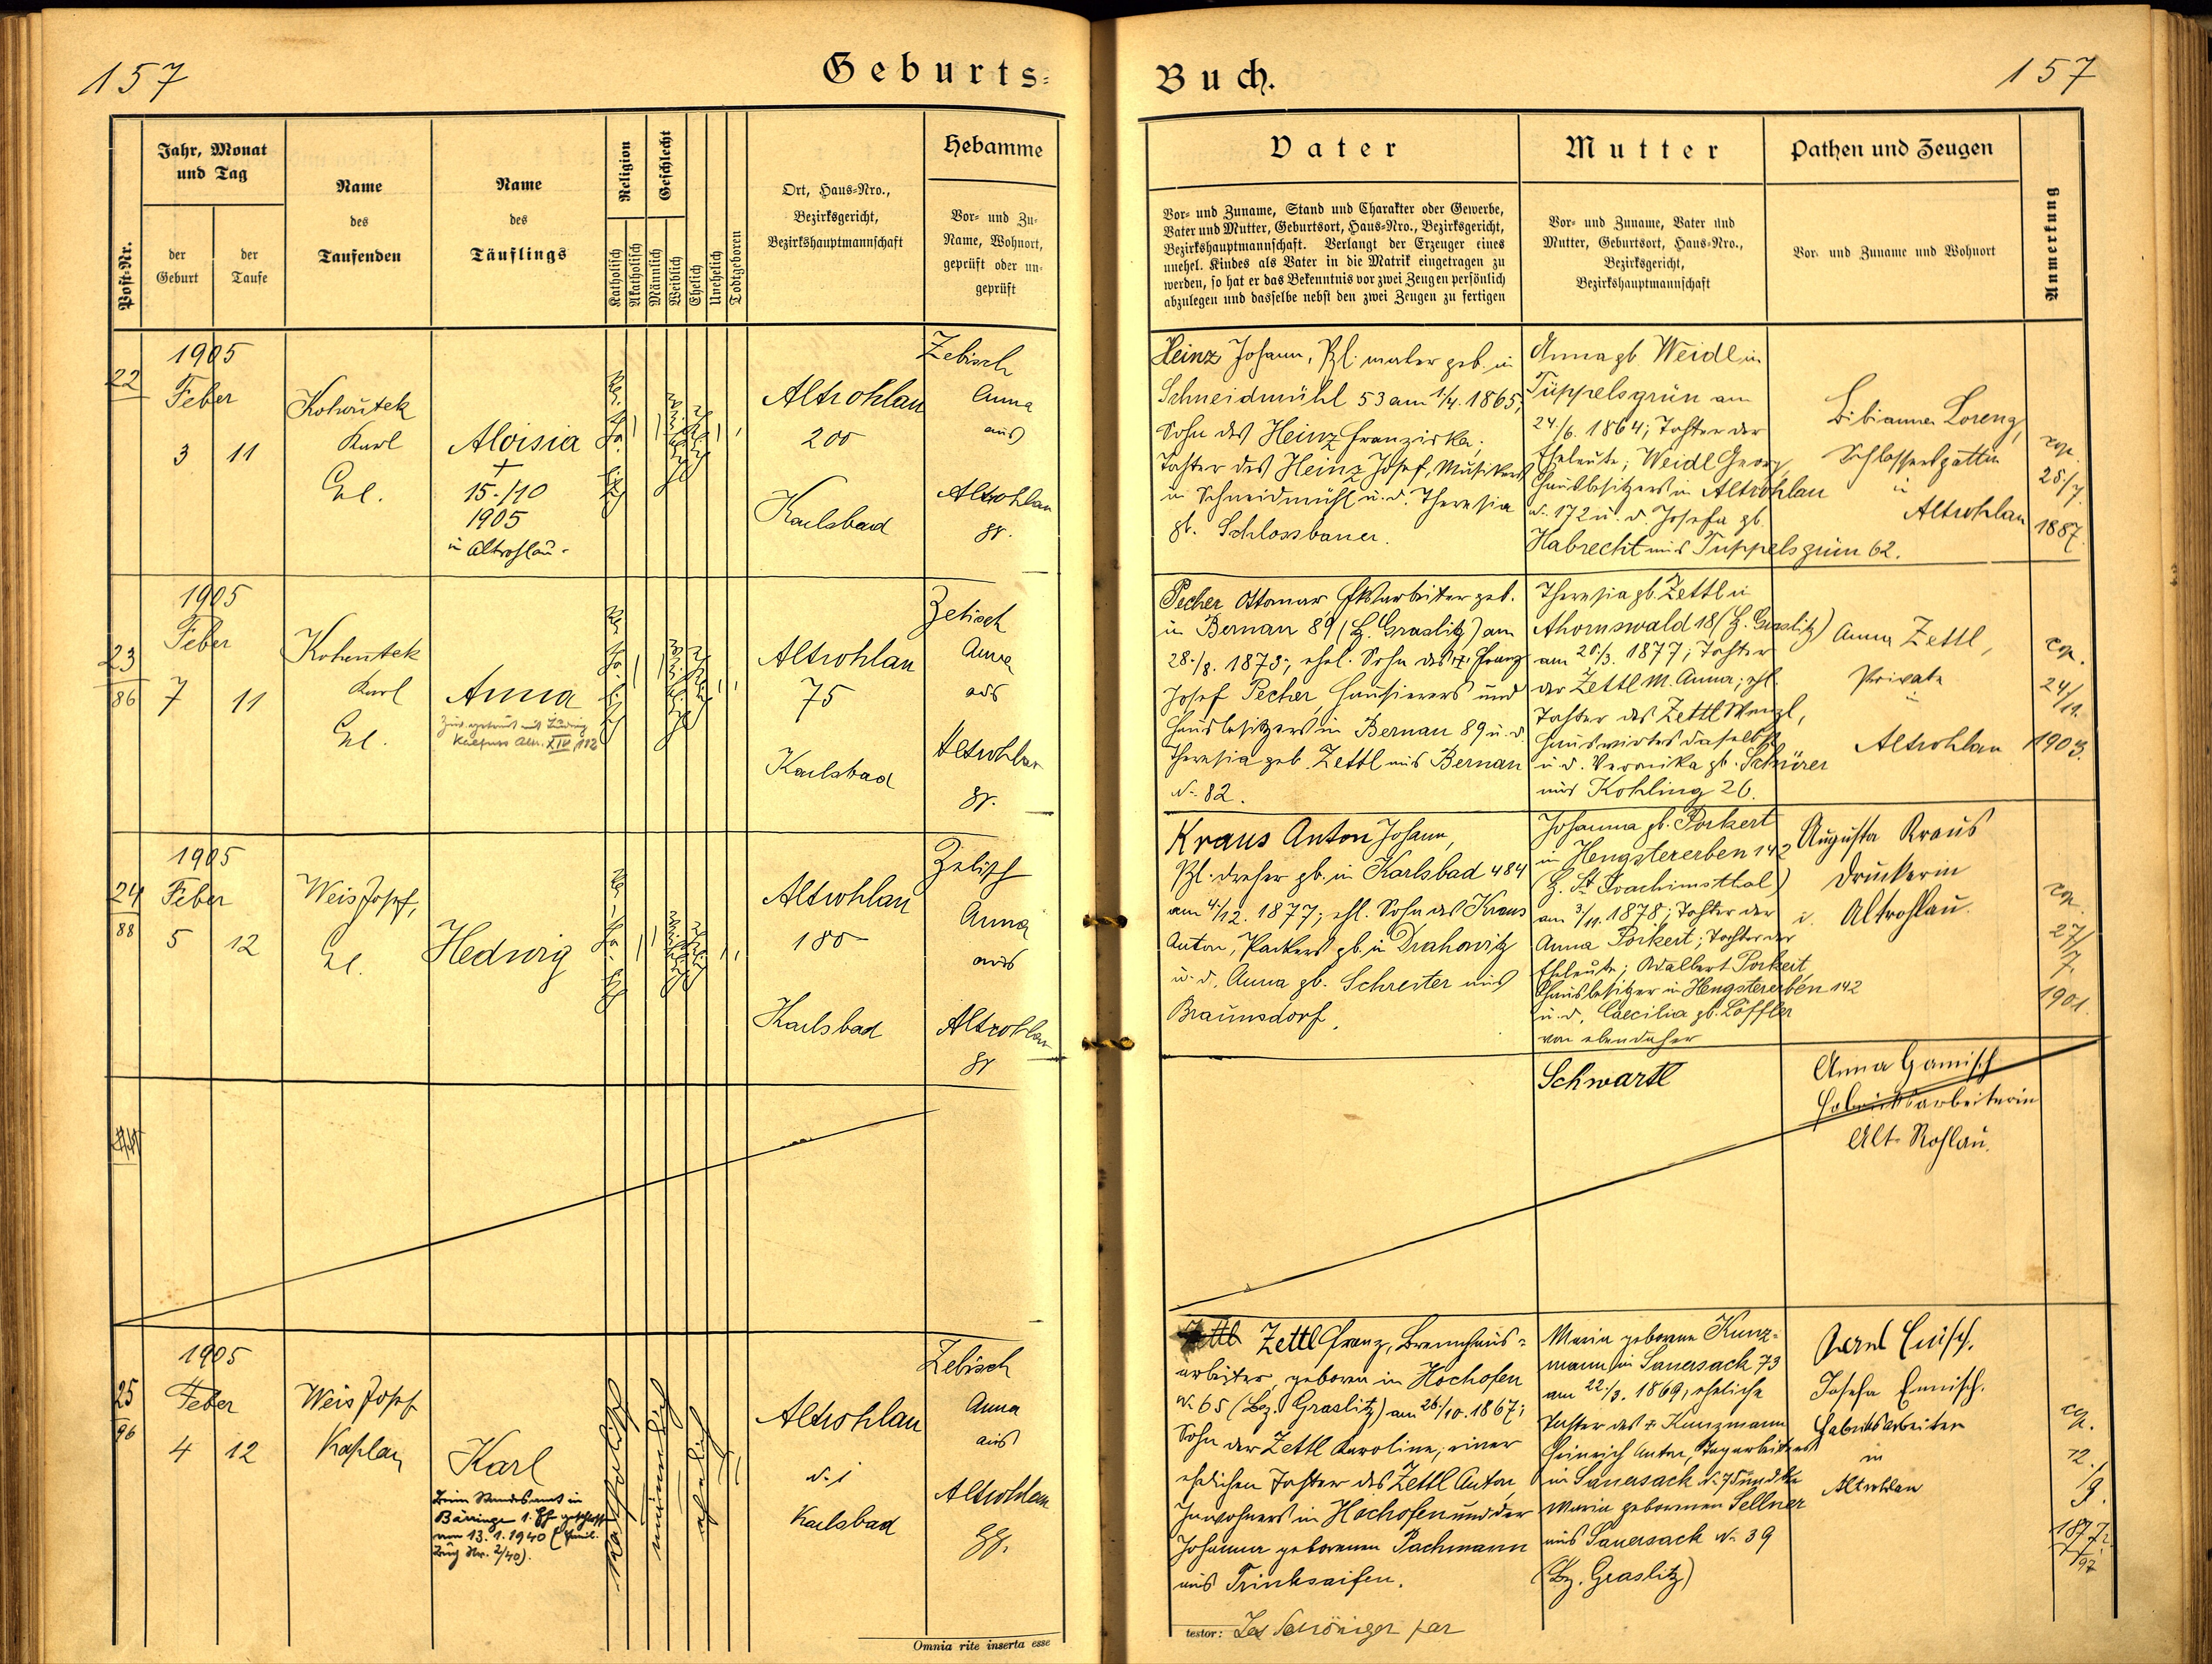 157
Geburts-
Post-Nr.
Jahr, Monat
und Tag
der
Geburt
der
Taufe
Name
des
Taufenden
Name
des
Täuflings
Religion
Katholisch
Akatholisch
Geschlecht
Männlich
Weiblich
Ehelich
Unehelich
Todtgeboren
Ort, Haus-Nro.,
Bezirksgericht,
Bezirkshauptmannschaft
Hebamme
Vor- und Zu-
Name, Wohnort,
geprüft oder un-
geprüft
22
1905
Feber
3 11
Kohoutek
Karl
Aloisia
†
15./10
1905
in Altrohlau.
Altrohlau
200
Karlsbad
Zebisch
Anna
aus
Altrohlau
gr.
23
86
1905
Feber
7 11
Kohoutek
Karl
Anna
Altrohlau
75
Karlsbad
Zebisch
Anna
aus
Altrohlau
gr.
24
88
1905
Feber
5 12
Weis Josef,
Hedwig
Altrohlau
180
Karlsbad
Zebisch
Anna
aus
Altrohlau
gr
25
96
1905
Feber
4 12
Weis Josef
Kaplan
Karl
Beim Standesamt in
Bärringen 1. Ehe geschlossen
am 13. 1. 1940 (Famil.
Buch Nr. 2/40).
katholisch
männlich
ehelich
Altrohlau
N. 1
Karlsbad
Zebisch
Anna
aus
Altrohlau
Omnia rite inserta esse
Buch.
157
Vater
Vor- und Zuname, Stand und Charakter oder Gewerbe,
Vater und Mutter, Geburtsort, Haus-Nro., Bezirksgericht,
Bezirkshauptmannschaft. Verlangt der Erzeuger eines
unehel. Kindes als Vater in die Matrik eingetragen zu
werden, so hat er das Bekenntnis vor zwei Zeugen persönlich
abzulegen und dasselbe nebst den zwei Zeugen zu fertigen
Mutter
Vor- und Zuname, Vater und
Mutter, Geburtsort, Haus-Nro.,
Bezirksgericht,
Bezirkshauptmannschaft
Pathen und Zeugen
Vor- und Zuname und Wohnort
Anmerkung
Heinz Johann, Pzl. maler geb. in
Schneidmühl 53 am 1/4. 1865,
Sohn des Heinz Franziska,
Tochter des Heinz Josef, Musikers
in Schneidmühl u. d. Theresia
gb. Schlossbauer.
Anna gb. Weidl in
Tüppelsgrün am
24./6. 1864; Tochter der
Eheleute; Weidl Georg,
Hausbesitzers in Altrohlau
N. 172 u. d. Josefa gb.
Habrecht aus Tüppelsgrün 62.
Bibianna Lorenz,
Schlossersgattin
in
Altrohlau
cop.
28./7.
1887.
Pecher Ottomar, Fksarbeiter geb.
in Bernau 89 (B. Graslitz) am
28./8. 1873; ehel. Sohn des Franz
Josef Pecher, Hausierers und
Hausbesitzers in Bernau 89 u. d.
Theresia geb. Zettl aus Bernau
N. 82.
Theresia gb. Zettl in
Ahornswald 18 (B. Graslitz)
am 20./3. 1877; Tochter
der Zettl M. Anna; ehl.
Tochter des Zettl Wenzl,
Hauswirtes daselbst
u. d. Veronika gb. Schürer
aus Kohling 26.
Anna Zettl,
Private
in
Altrohlau
cop.
24/11.
1903.
Kraus Anton Johann,
Pzl. dreher gb. in Karlsbad 484
am 4./12. 1877; ehl. Sohn des Kraus
Anton, Packers gb. in Drahowitz
u. d. Anna gb. Schreiter aus
Braunsdorf.
Johanna gb. Porkert
in Hengstererben 142
(B. St. Joachimsthal)
am 3/11. 1878; Tochter der
Anna Porkert; Tochter der
Eheleute; Adalbert Porkert,
Hausbesitzer in Hengstererben 142
u. d. Caecilia gb. Löffler
von ebendaher
Augusta Kraus
Druckerin
i. Altrohlau.
cop.
27/7.
1901.
Schwartl
Anna Hamisch
Fabrikarbeiterin
Alt-Rohlau.
Zettl Franz, Brennhaus-
arbeiter, geboren in Hochofen
N. 65 (Bez. Graslitz) am 26/10. 1867;
Sohn der Zettl Karoline, einer
ehelichen Tochter des Zettl Anton,
Inwohners in Hochofen und der
Johanna geborenen Pachmann
aus Trinksaifen.
Maria geborene Kunz-
mann in Sauersack 73
am 22./3. 1869, eheliche
Tochter des † Kunzmann
Heinrich Anton, Tagarbeiters
in Sauersack N. 75 und der
Maria geborenen Sellner
aus Sauersack N. 39
(Bz. Graslitz)
Josefa Ennisch.
Fabriksarbeiter
in
Altrohlau
cop.
12./9.
testor: Jos Schöniger par